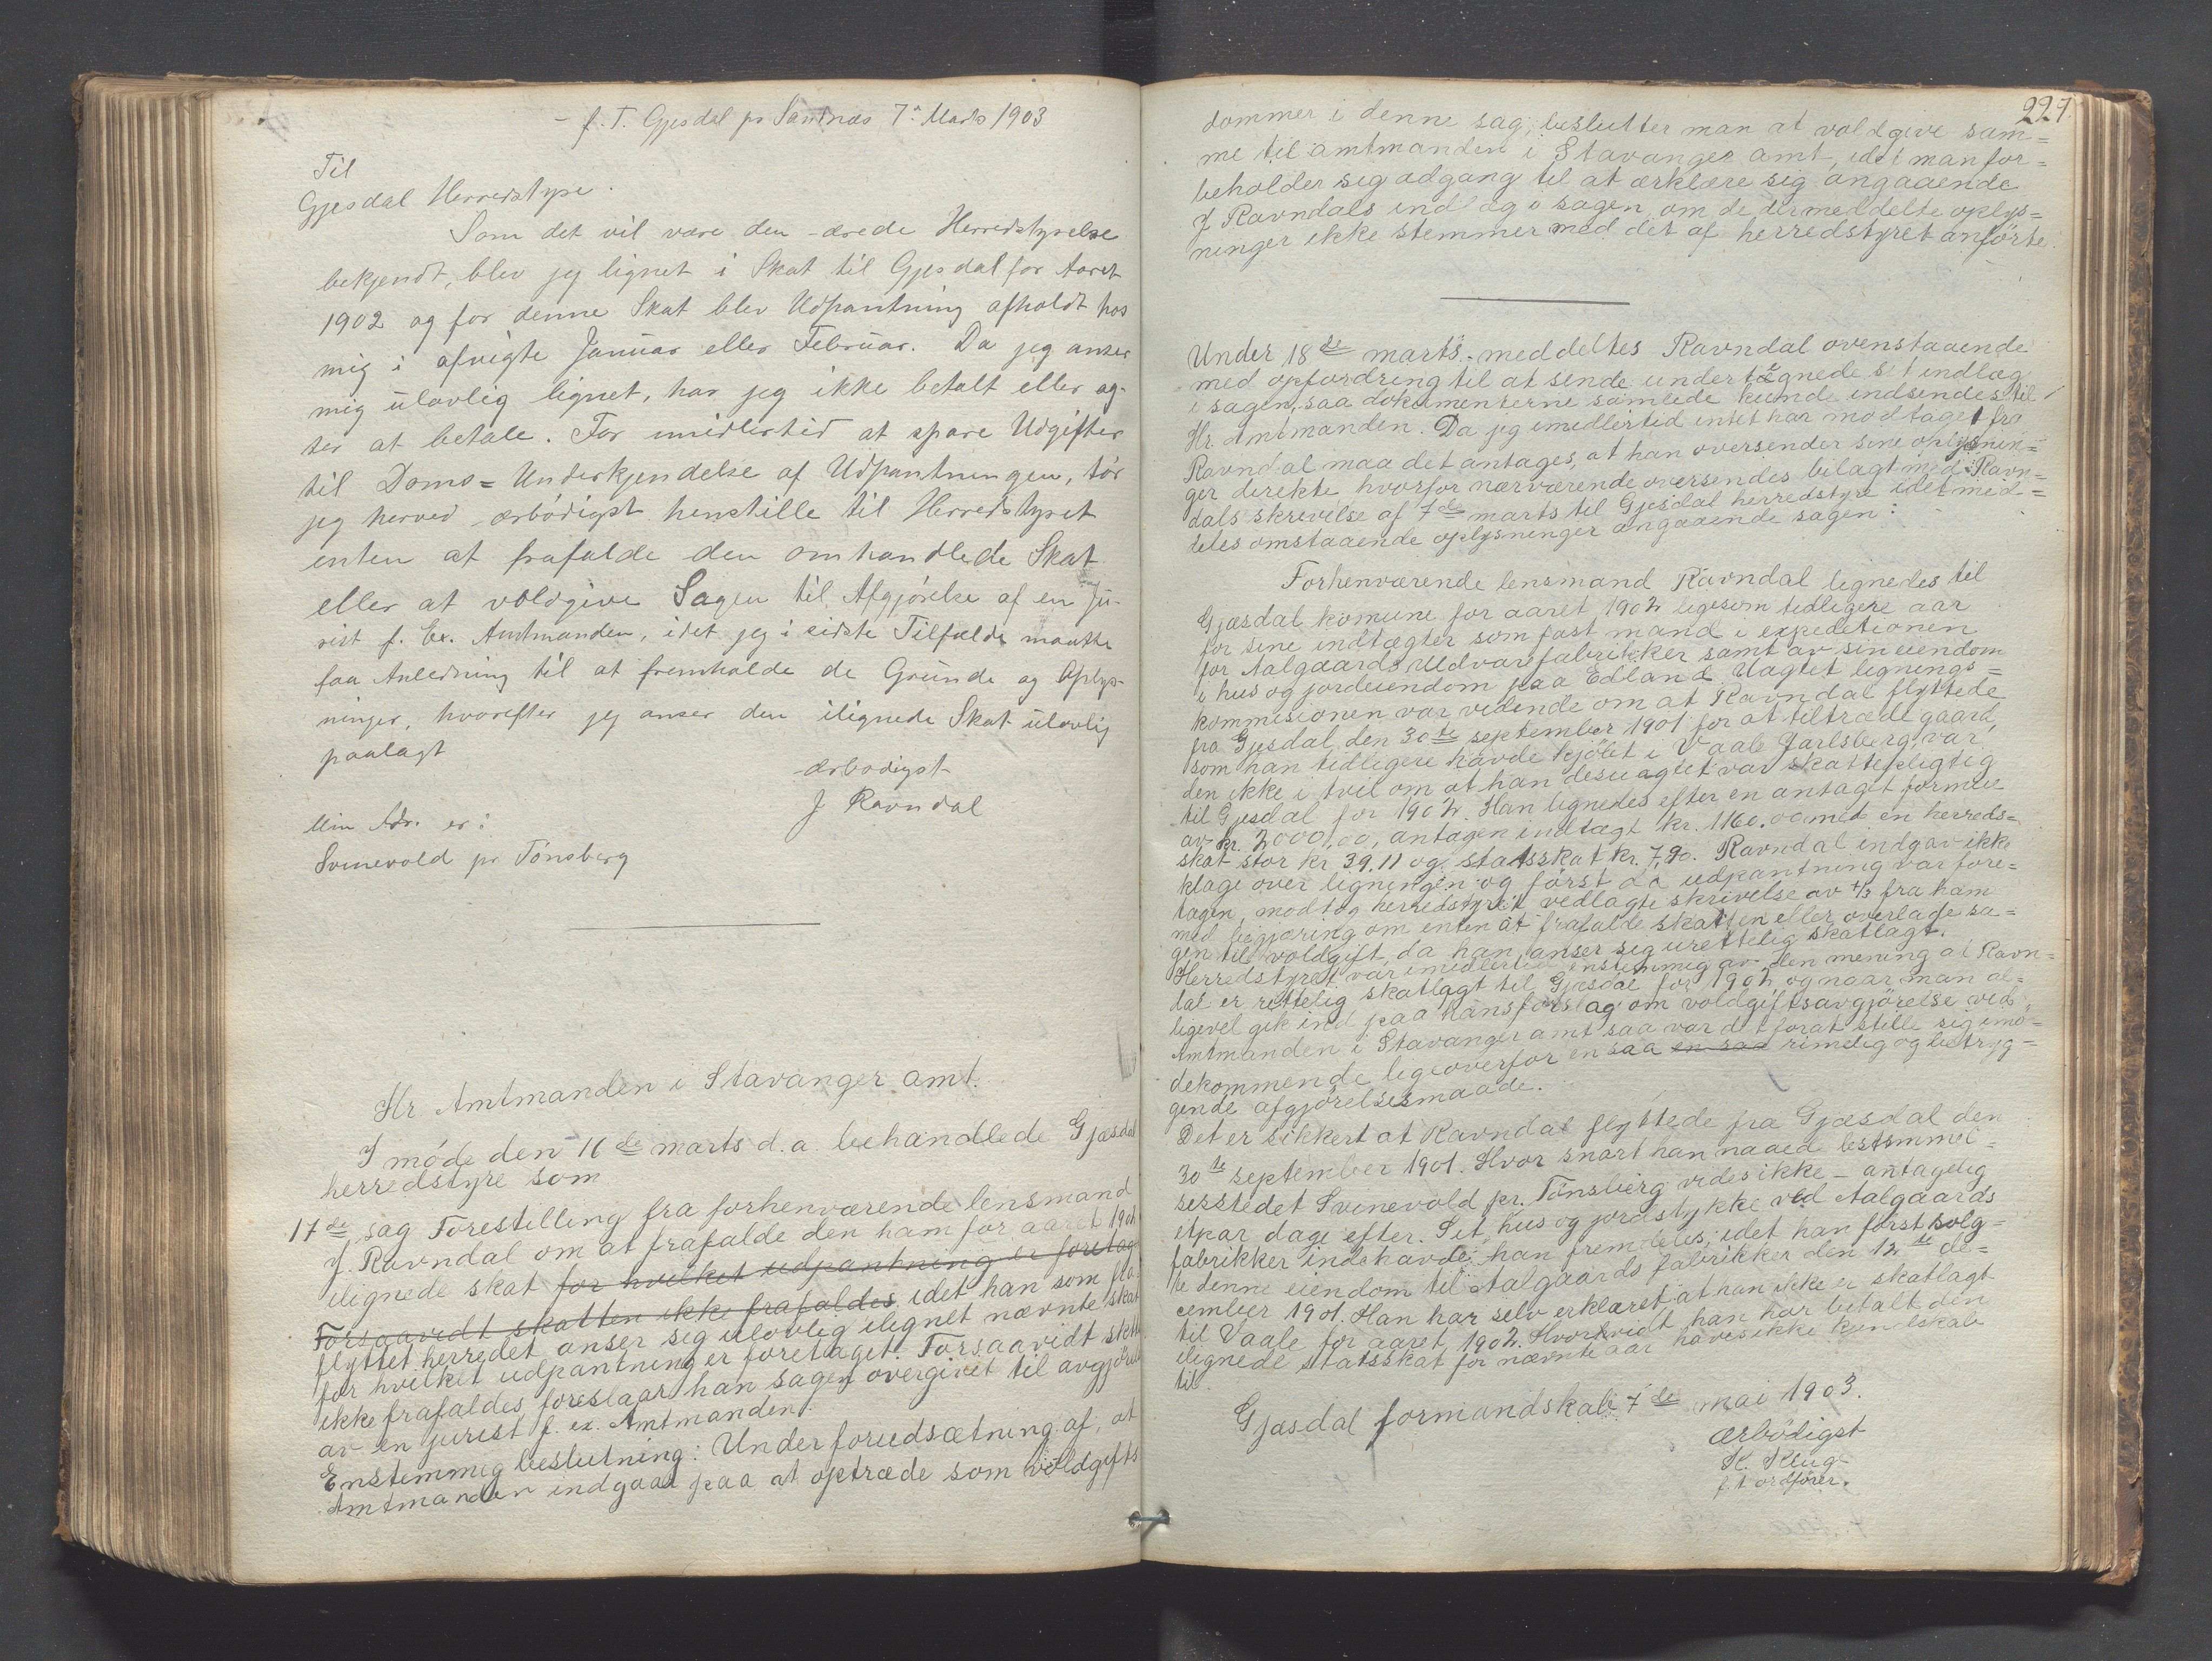 – f. T. Gjesdal pr Sandnæs 7de Marts 1903
Til
Gjesdal Herredstyre.
Som det vil være den ærede Herredstyrelse
bekjendt, blev jeg lignet i Skat til Gjesdal for Aaret
1902 og for denne Skat blev Udpantning afholdt hos
mig i afvigte Januar eller Februar. Da jeg anser
mig ulovlig lignet, har jeg ikke betalt eller ag-
ter at betale. For imidlertid at spare Udgifter
til Doms=Underkjendelse af Udpantningen, tør
jeg herved ærbödigst henstille til Herredstyret
enten at frafalde den omhandlede Skat
eller at voldgive Sagen til Afgjörelse af en Ju-
rist f. Ex. Amtmanden, idet jeg i sidste Tilfælde maatte
faa Anledning til at fremholde de Grunde og Oplys-
ninger, hvorefter jeg anser den ilignede Skat ulovlig
paalagt
Ærbødigst
J Ravndal
Min Adr. er:
Svinevold pr Tönsberg
Hr. Amtmanden i Stavanger amt.
I möde den 16de marts d.a. behandlede Gjæsdal
herredstyre som
17de sag Forestilling fra forhenværende lensmand
J. Ravndal om at frafalde den ham for aaret 1902
ilignede skat for hvilket udpantning er foretag
Forsaavidt skatten ikke frafaldes, idet han som fra-
flyttet herredet anser sig ulovlig ilignet nævnte skat
for hvilket udpantning er foretaget. Forsaavidt skatten
ikke frafaldes foreslaar han sagen overgivet til avgjörelse
av en jurist f. ex. Amtmanden.
Enstemmig beslutning: Under forudsætning af, at
Amtmanden indgaar paa at optræde som voldgifts
227.
dommer i denne sag, beslutter man at voldgive sam=
me til amtmanden i Stavanger amt, idet man for=
beholder sig adgang til at erklære sig angaaende
J Ravndals indlæg i sagen om de der meddelte oplys=
ninger ikke stemmer med det af herredstyret anförte.
Under 18de marts meddeltes Ravndal ovenstaaende
med opfordring til at sende undertegnede sit indlæg
i sagen, saa dokumenterne samlede kunde indsendes til
Hr. Amtmanden. Da jeg imedlertid intet har modtaget fra
Ravndal maa det antages, at han oversender sine oplysnin=
ger direkte hvorfor nærværende oversendes bilagt med Ravn=
dals skrivelse af 7de marts til Gjesdal herredstyre idet med=
deles omstaaende oplysninger angaaende sagen:
Forhenværende lensmand Ravndal lignedes til
Gjæsdal komune for aaret 1902 ligesom tidligere aar
for sine indtægter som fast mand i expeditionen
for Aalgaards Uldvarefabrikker samt av sin eiendom
i hus og jordeiendom paa Edland. Uagtet lignings=
kommisionen var vidende om at Ravndal flyttede
fra Gjesdal den 30te september 1901 for at tiltræde gaard,
som han tidligere havde kjöbt i Vaale Jarlsberg, var
den ikke i tvil om at han desuagtet var skattepligtig
til Gjesdal for 1902. Han lignedes efter en antaget formue
av kr. 2000,00, antagen indtægt kr. 1160.00 med en herreds=
skat stor kr 39.11 og statsskat kr. 7,90. Ravndal indgav ikke
klage over ligningen og först da udpantning var fore=
tagen, modtog herredstyret vedlagte skrivelse av 7/3 fra ham
med begjæring om enten at frafalde skatten eller overlade sa=
gen til voldgift, da han anser sig urettelig skatlagt.
Herredstyret var imedlertid enstemmig av den mening at Ravn=
dal er rettelig skatlagt til Gjæsdal for 1902 og naar man al=
ligevel gik ind paa hans forslag om voldgiftsavgjörelse ved
Amtmanden i Stavanger amt saa var det forat stille sig imö=
dekommende ligeoverfor en saa en saa rimelig og betryg=
gende afgjörelsesmaade.
Det er sikkert at Ravndal flyttede fra Gjæsdal den
30te september 1901. Hvor snart han naaed bestemmel=
sesstedet Svinevold pr. Tönsberg vides ikke – antagelig
etpar dage efter. Sit hus og jordstykke ved Aalgaards
fabrikker indehavde han fremdeles, idet han först solg=
te denne eiendom til Aalgaards fabrikker den 12te de=
cember 1901. Han har selv erklæret, at han ikke er skatlagt
til Vaale for aaret 1902. Hvorvidt han har betalt den
ilignede statsskat for nævnte aar haves ikke kjendskab
til.
Gjæsdal formandskab 7de mai 1903.
ærbödigst
K. Klug
f. t. ordförer.